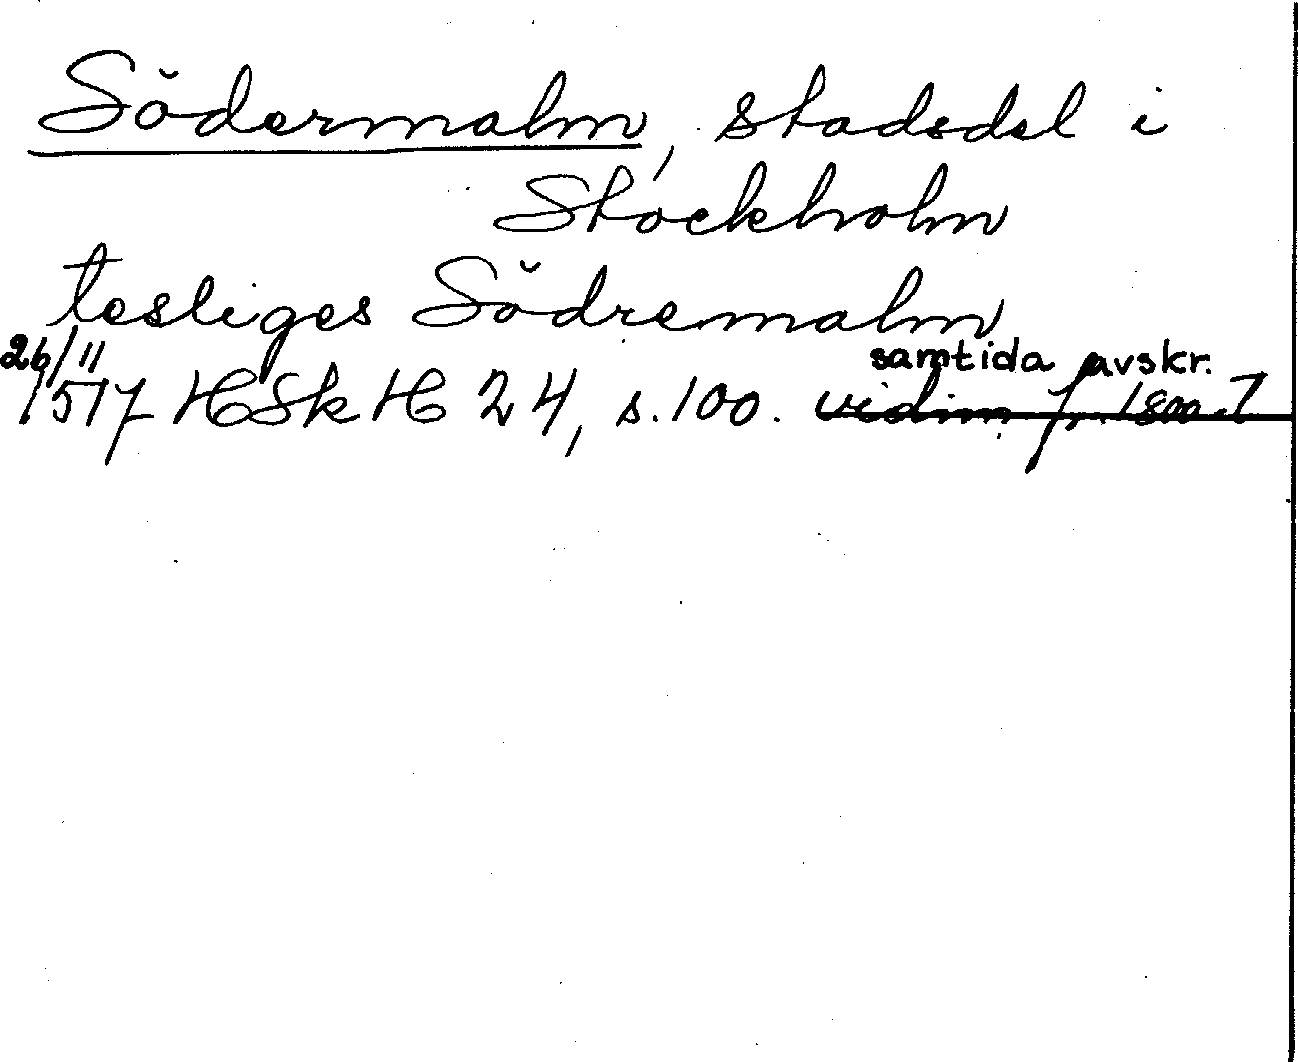 Södermalm, stadsdel i
Stockholm
tesliges Södremalm
26/11 samtida avskr.
1517 HSkH 24, s. 100. vidim fr. 1800-t